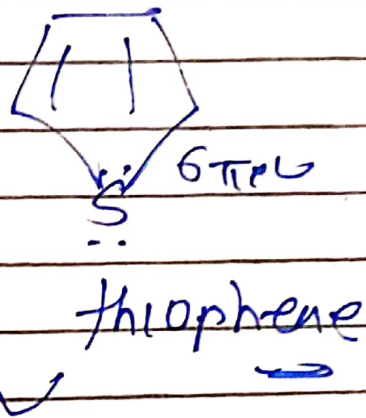 S
6πe
thiophene